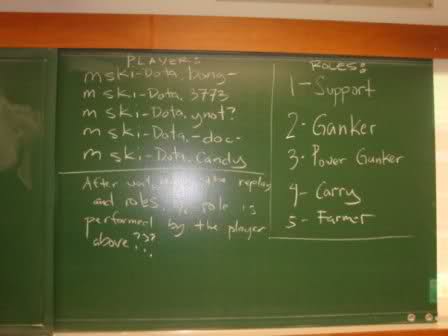 PLAYER:
mski-Dota.bong-
mski-Dota.3773
mski-Dota.ynot?
mski-Dota.-doc-
mski-Dota.Candy
After the replay
and role is
performed by the player
above???
ROLES:
1-Support
2-Ganker
3-Power Ganker
4-Carry
5-Farmer